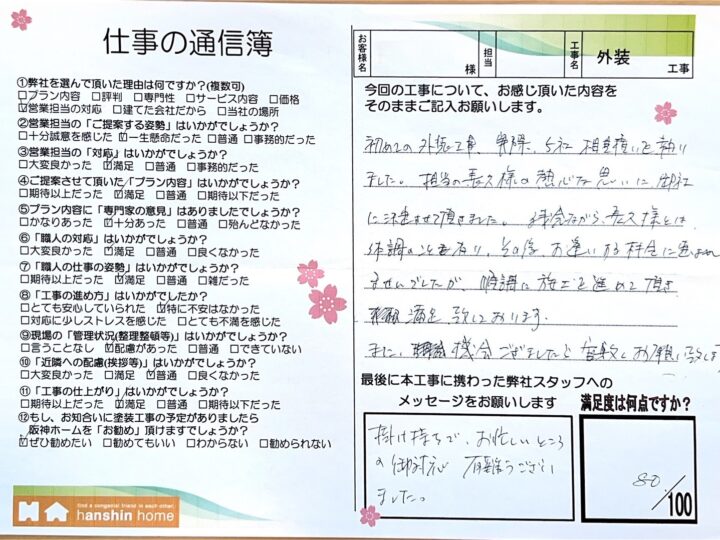 仕事の通信簿
①弊社を選んで頂いた理由は何ですか?(複数可)
□プラン内容 □評判 □専門性 □サービス内容 □価格
☑営業担当の対応 □建てた会社だから □当社の場所
②営業担当の「ご提案する姿勢」はいかがでしょうか?
□十分誠意を感じた ☑一生懸命だった □普通 □事務的だった
③営業担当の「対応」はいかがでしょうか?
□大変良かった ☑満足 □普通 □事務的だった
④ご提案させて頂いた「プラン内容」はいかがでしょうか?
□期待以上だった ☑満足 □普通 □期待以下だった
⑤プラン内容に「専門家の意見」はありましたでしょうか?
□かなりあった ☑十分あった □普通 □殆んどなかった
⑥「職人の対応」はいかがでしょうか?
□大変良かった ☑満足 □普通 □良くなかった
⑦「職人の仕事の姿勢」はいかがでしょうか?
□期待以上だった ☑満足 □普通 □雑だった
⑧「工事の進め方」はいかがでしたか?
□とても安心していられた ☑特に不安はなかった
□対応に少しストレスを感じた □とても不満を感じた
⑨現場の「管理状況(整理整頓等)」はいかがでしょうか?
□言うことなし ☑配慮があった □普通 □できていない
⑩「近隣への配慮(挨拶等)」はいかがでしょうか?
□大変良かった ☑満足 □普通 □良くなかった
⑪「工事の仕上がり」はいかがでしょうか?
□期待以上だった ☑満足 □普通 □期待以下だった
⑫もし、お知合いに塗装工事の予定がありましたら
阪神ホームを「お勧め」頂けますでしょうか?
☑ぜひ勧めたい □勧めてもいい □わからない □勧められない
find a congenial friend in each other.
hanshin home
お客様名 様 担当 工事名 外装 工事
今回の工事について、お感じ頂いた内容を
そのままご記入お願いします。
初めての外装工事、実際、5社相見積いを執り
ました。担当の長久様の熱心な思いに、御社
に決定させて頂きました。残念ながら、長久様とは
体調のことも有り、その後、お逢いする機会に恵まれ
ませんでしたが、順調に施工を進めて頂き
満足致しております。
また、機会ございましたら宜敷くお願い致します
最後に本工事に携わった弊社スタッフへの
メッセージをお願いします
掛け持ちで、お忙しいところ
の御対応有難うござい
ました。
満足度は何点ですか?
80/100